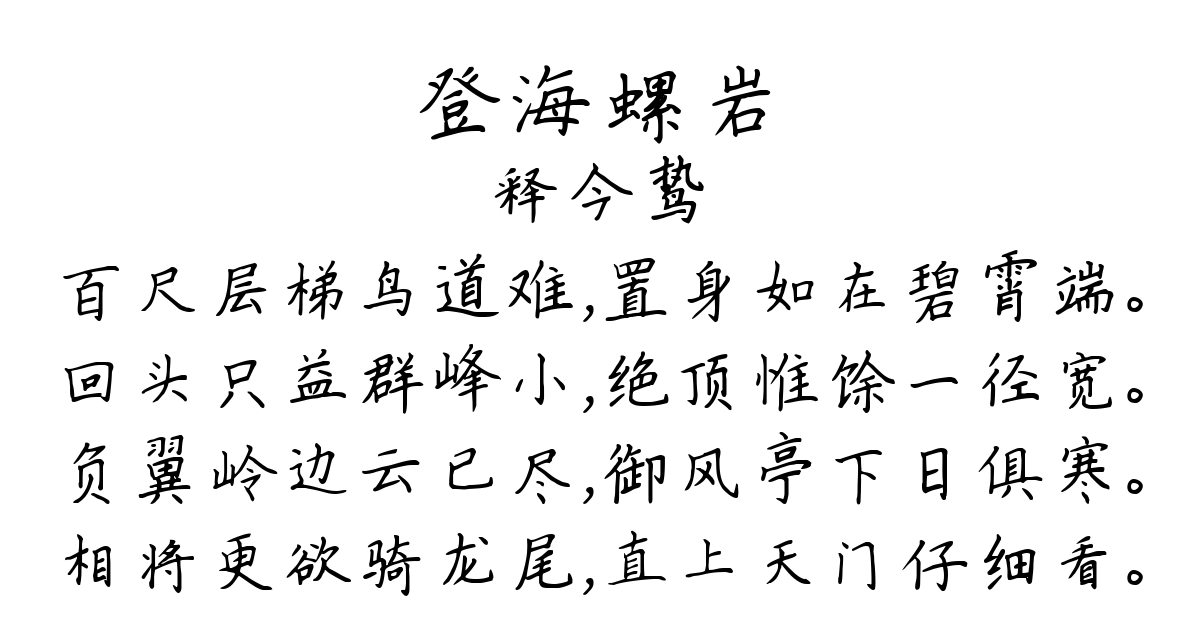 登海螺岩
释今鸷
百尺层梯鸟道难,置身如在碧霄端。
回头只益群峰小,绝顶惟馀一径宽。
负翼岭边云已尽,御风亭下日俱寒。
相将更欲骑龙尾,直上天门仔细看。